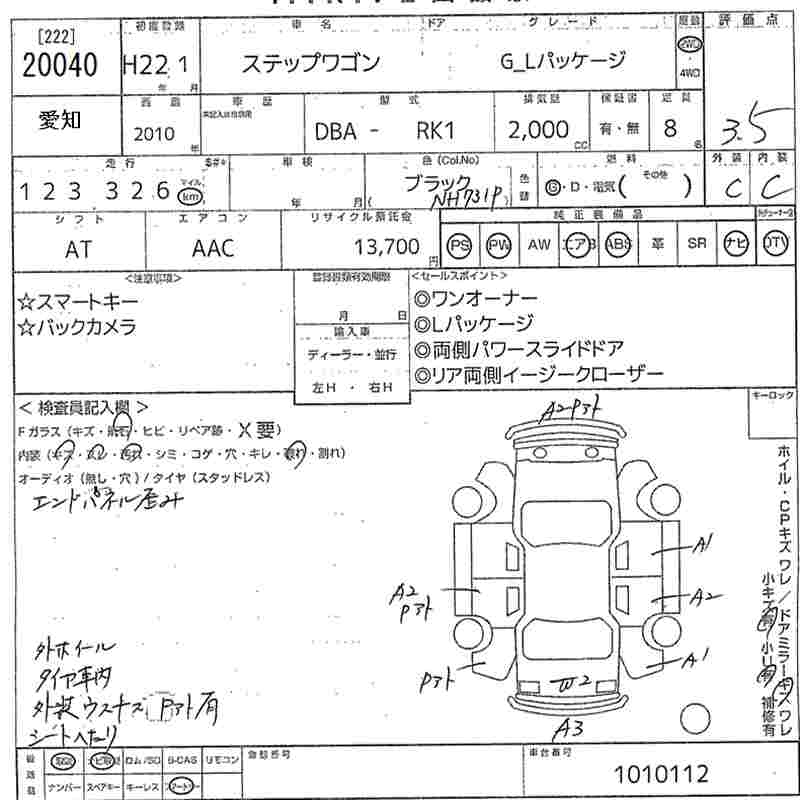 [222]
20040
初度登録
H22 1
年 月
車名
ステップワゴン
ドア
グレード
G_Lパッケージ
駆動
2WD
4WD
評価点
3.5
愛知
2010
年
車歴
型式
DBA - RK1
排気量
2,000
CC
保証書
有・無
定員
8
名
走行
123 326
マイル
km
車検
年 月
色(Col.No)
ブラック
NH731P
燃料
G・D・電気( その他 )
外装
C
内装
C
シフト
AT
エアコン
AAC
リサイクル預託金
13,700
円
純正装備品
PS PW AW エアB ABS 革 SR ナビ DTV
<注意事項>
☆スマートキー
☆バックカメラ
登録書類有効期限
月 日
輸入車
ディーラー・並行
左H ・ 右H
<セールスポイント>
◎ワンオーナー
◎Lパッケージ
◎両側パワースライドドア
◎リア両側イージークローザー
キーロック
< 検査員記入欄 >
Fガラス (キズ・飛石・ヒビ・リペア跡・X要)
内装 (キズ・スレ・汚れ・シミ・コゲ・穴・キレ・割れ)
オーディオ (無し・穴) / タイヤ (スタッドレス)
エンドパネル歪み
A2-Pアト
A1
A2
Pアト
A2
Pアト
A1
W2
A3
ホイル・CPキズワレ/ドアミラーキズワレ
小キズ有 小凹有 補修有
外ホイール
タイヤ車内
外装 ウスキズ Pアト有
シートへたり
取説 ナビ取説 ロム/SD B-CAS リモコン
ナンバー スペアキー キーレス スマートキー
登録番号
車台番号
1010112